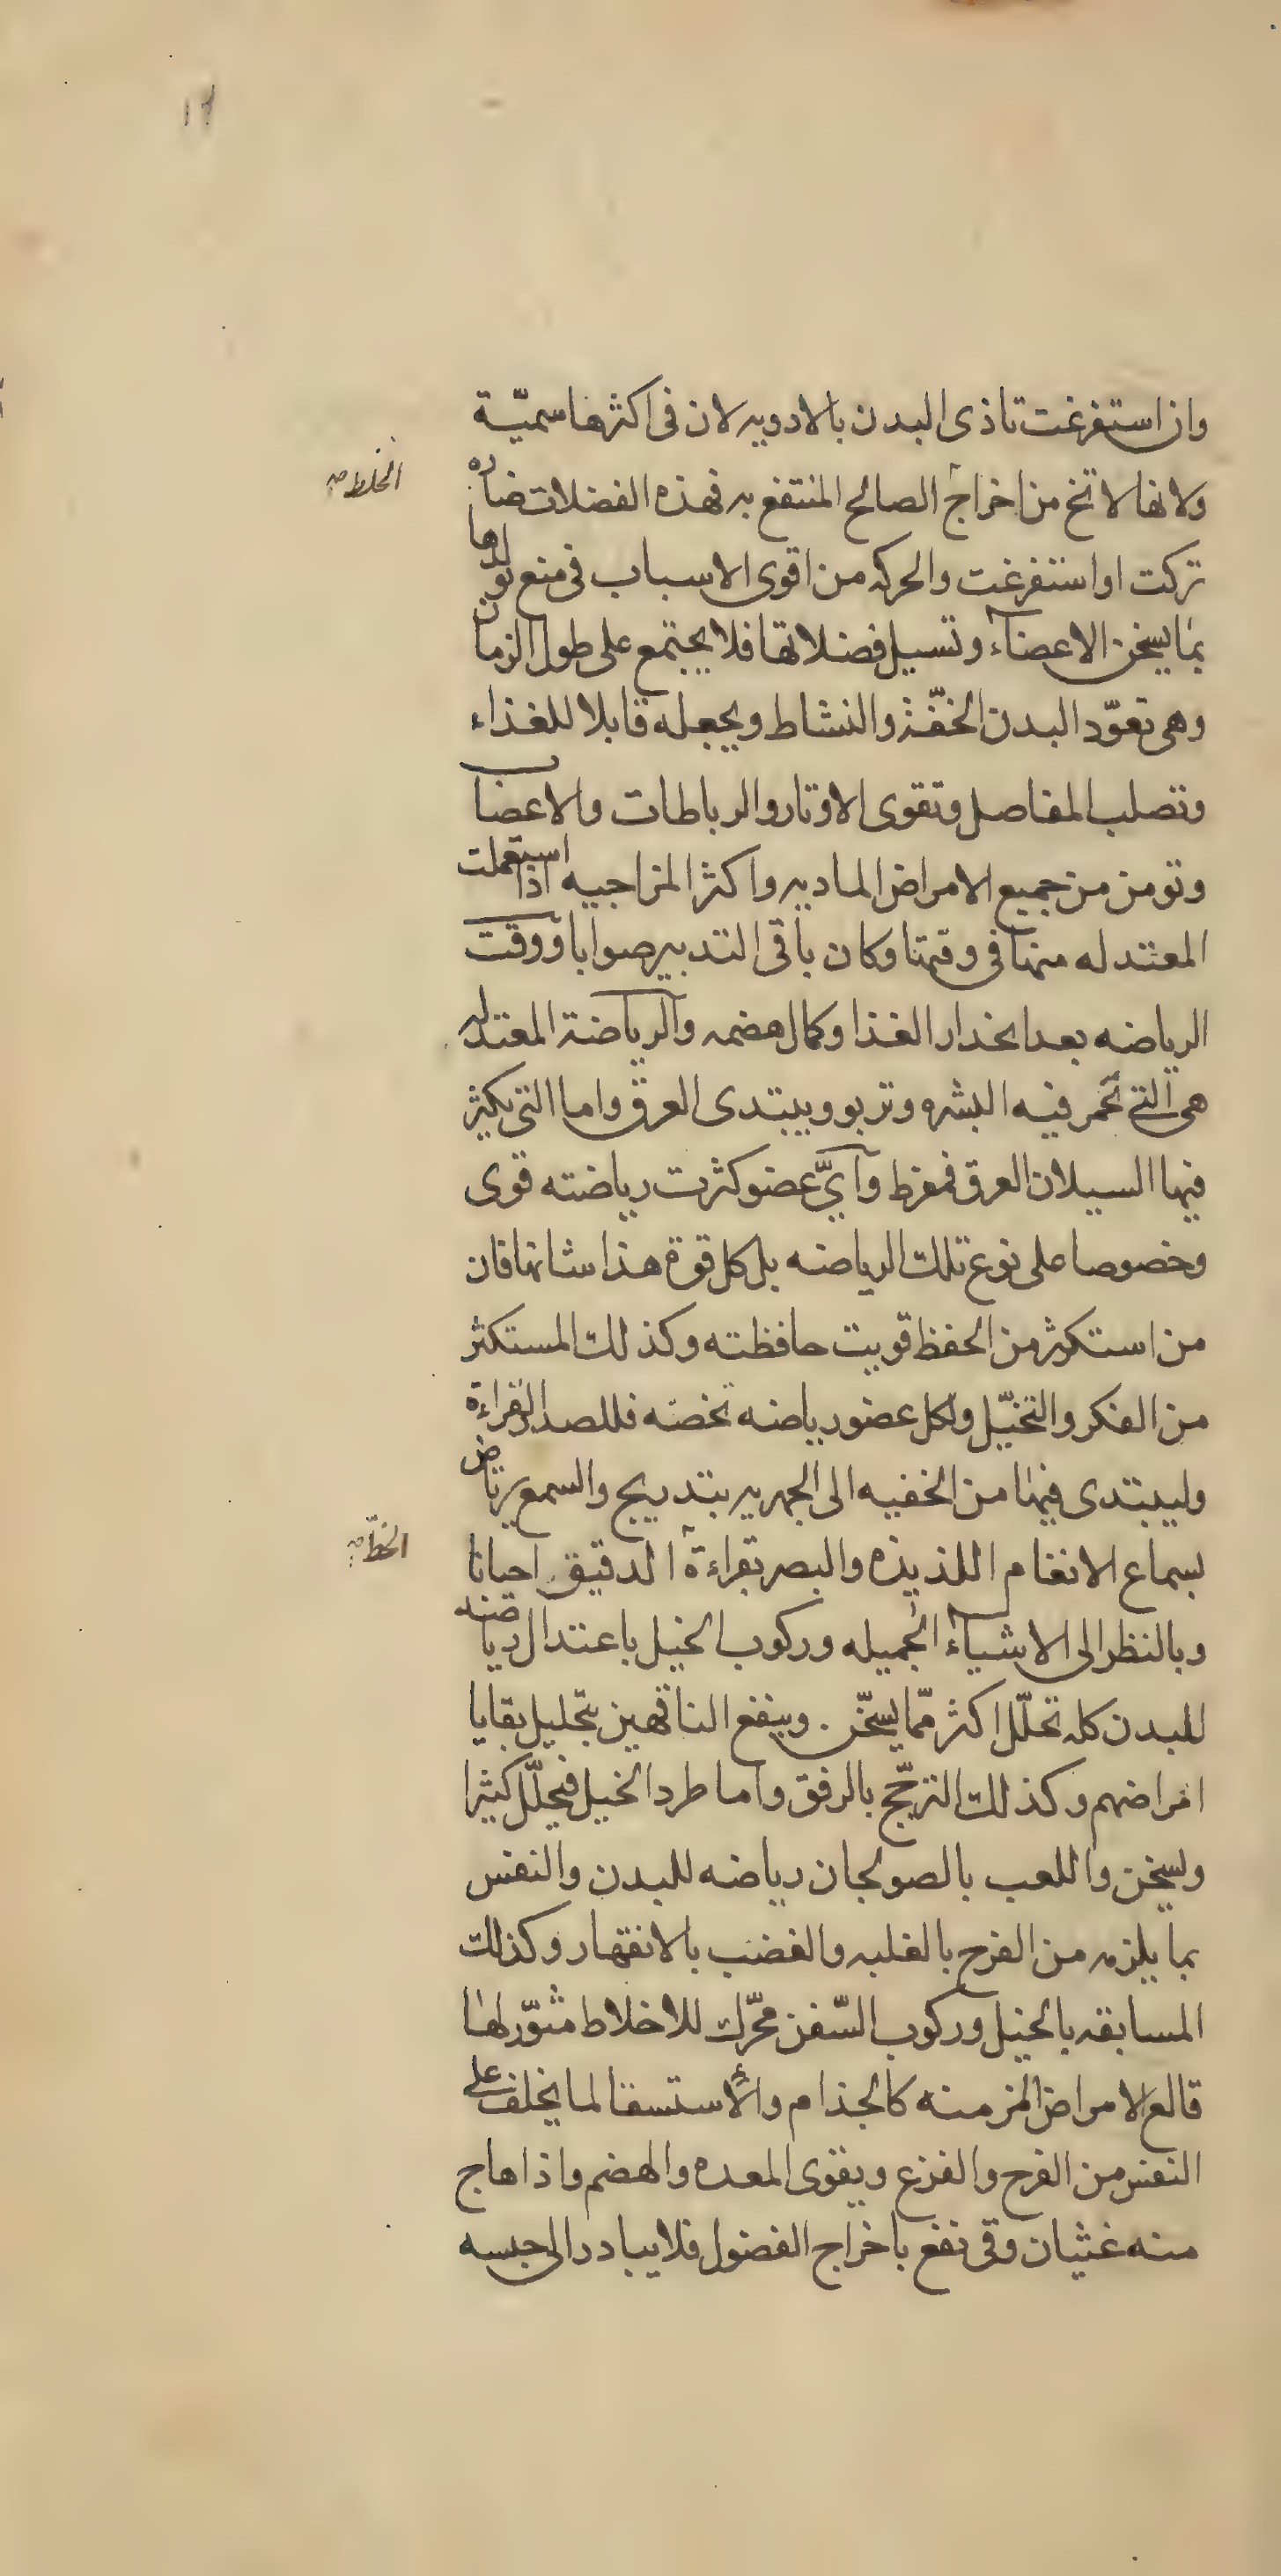 ١٦
وان استفرغت تاذى البدن بالادويه لان فى اكثرها سميّة
ولانها لا تخ من اخراج الصالح المنتفع به فهذه الفضلات ضاره
الخلط صح
تركت او استفرغت والحركه من اقوى الاسباب فى منع تولدها
بما يسخن الاعضاء وتسيل فضلاتها فلا يجتمع على طول الزمان
وهى تعوّد البدن الخفّة والنشاط ويجعله قابلا للغذاء
وتصلب المفاصل وتقوى الاوتار والرباطات والاعضا
وتومن من جميع الامراض الماديه واكثر المزاجيه اذا استعملت
المعتدله منها فى وقتها وكان باقى التدبير صوابا ووقت
الرياضه بعد انحدار الغذا وكمال هضمه والرياضة المعتدله
هى التى تحمر فيه البشره وتربو ويبتدى العرق واما التى يكثر
فيها السيلان العرق فمفرط وأىّ عضو كثرت رياضته قوى
وخصوصا على نوع تلك الرياضه بل كل قوة هذا شانها فان
من استكثر من الحفظ قويت حافظته وكذلك المستكثر
من الفكر والتخيّل ولكل عضو رياضه تخصّه فللصدر القراءة
وليبتدى فيها من الخفيه الى الجهريه بتدريج والسمع يرتاض
بسماع الانغام اللذيذه والبصر بقراءة الدقيق احيانا
الخطّ صح
وبالنظر الى الاشياء الجميله وركوب الخيل باعتدال رياضته
للبدن كله تحلّل اكثر ممّا يسخّن وينفع الناقهين بتحليل بقايا
امراضهم وكذلك الترجّح بالرفق واما طرد الخيل فيحلّل كثيرا
ويسخن واللعب بالصولجان رياضه للبدن والنفس
بما يلزمه من الفرح بالغلبه والغضب بالانقهار وكذلك
المسابقه بالخيل وركوب السّفن محرّك للاخلاط مثوّر لها
قالع الامراض المزمنه كالجذام والاستسقاء لما يختلف على
النفس من الفرح والفزع ويقوى المعده والهضم واذا هاج
منه غثيان وقى نفع باخراج الفضول فلا يبادر الى حبسه